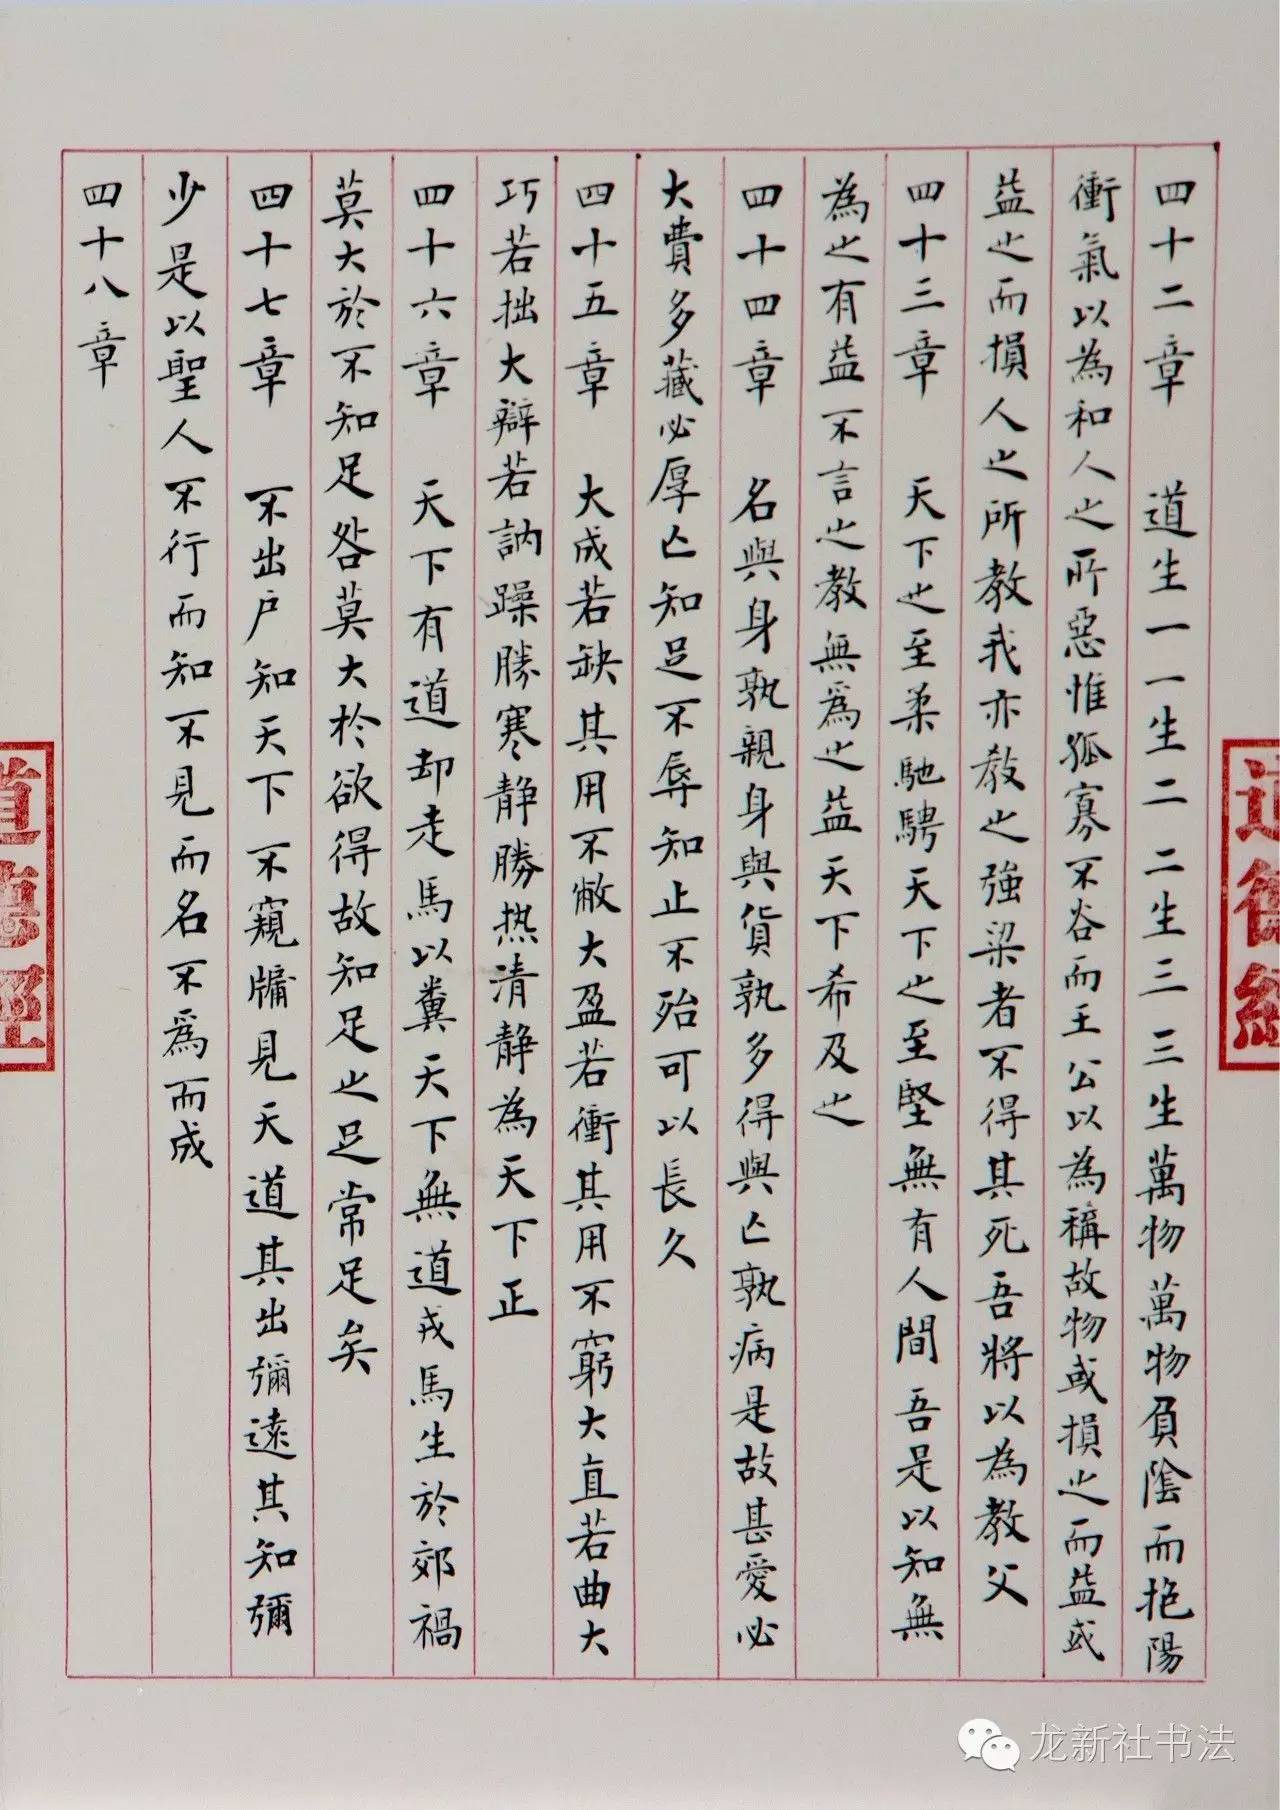 四十二章　道生一一生二二生三三生萬物萬物負陰而抱陽
衝氣以為和人之所惡惟孤寡不谷而王公以為稱故物或損之而益或
益之而損人之所教我亦教之強梁者不得其死吾將以為教父
四十三章　天下之至柔馳騁天下之至堅無有人間吾是以知無
為之有益不言之教無為之益天下希及之
四十四章　名與身孰親身與貨孰多得與亡孰病是故甚愛必
大費多藏必厚亡知足不辱知止不殆可以長久
四十五章　大成若缺其用不敝大盈若衝其用不窮大直若曲大
巧若拙大辯若訥躁勝寒静勝热清静為天下正
四十六章　天下有道却走馬以糞天下無道戎馬生於郊禍
莫大於不知足咎莫大於欲得故知足之足常足矣
四十七章　不出户知天下不窺牖見天道其出彌遠其知彌
少是以聖人不行而知不見而名不爲而成
四十八章
道德經
道德經
龙新社书法